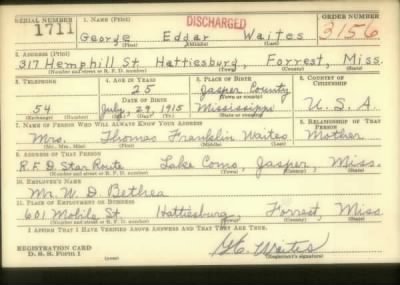 SERIAL NUMBER 1. NAME (Print) DISCHARGED ORDER NUMBER
1711 George Edgar Waites 3156
(First) (Middle) (Last)
2. ADDRESS (Print)
317 Hemphill St. Hattiesburg, Forrest, Miss.
(Number and street or R. F. D. number) (Town) (County) (State)
3. TELEPHONE 4. AGE IN YEARS 5. PLACE OF BIRTH 6. COUNTRY OF CITIZENSHIP
25 Jasper County
DATE OF BIRTH (Town or county)
54 July 29 1915 Mississippi U.S.A.
(Exchange) (Number) (Mo.) (Day) (Yr.) (State or country)
7. NAME OF PERSON WHO WILL ALWAYS KNOW YOUR ADDRESS 8. RELATIONSHIP OF THAT PERSON
Mrs. Thomas Franklin Waites Mother
(Mr., Mrs., Miss) (First) (Middle) (Last)
9. ADDRESS OF THAT PERSON
R.F.D. Star Route Lake Como, Jasper, Miss.
(Number and street or R. F. D. number) (Town) (County) (State)
10. EMPLOYER'S NAME
Mr. W. D. Bethea
11. PLACE OF EMPLOYMENT OR BUSINESS
601 Mobile St Hattiesburg, Forrest, Miss
(Number and street or R. F. D. number) (Town) (County) (State)
I AFFIRM THAT I HAVE VERIFIED ABOVE ANSWERS AND THAT THEY ARE TRUE.
REGISTRATION CARD
D. S. S. FORM 1 (over) (Registrant's signature)
Waites